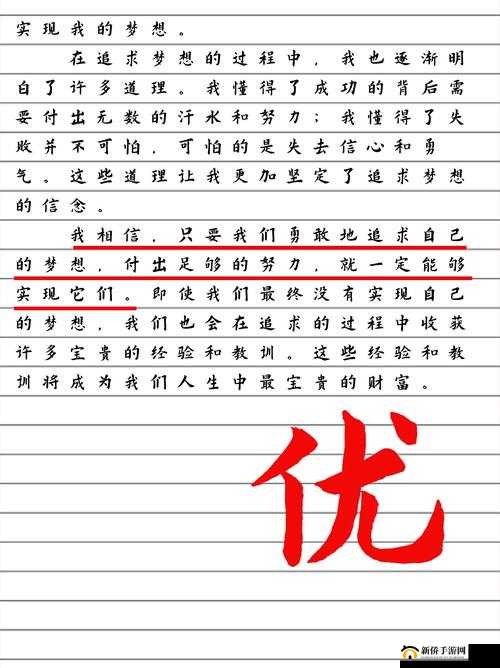 实现我的梦想。
在追求梦想的过程中，我也逐渐明
白了许多道理。我懂得了成功的背后需
要付出无数的汗水和努力；我懂得了失
败并不可怕，可怕的是失去信心和勇
气。这些道理让我更加坚定了追求梦想
的信念。
我相信，只要我们勇敢地追求自己
的梦想，付出足够的努力，就一定能够
实现它们。即使我们最终没有实现自己
的梦想，我们也会在追求的过程中收获
许多宝贵的经验和教训。这些经验和教
训将成为我们人生中最宝贵的财富。
优
新侨手游网